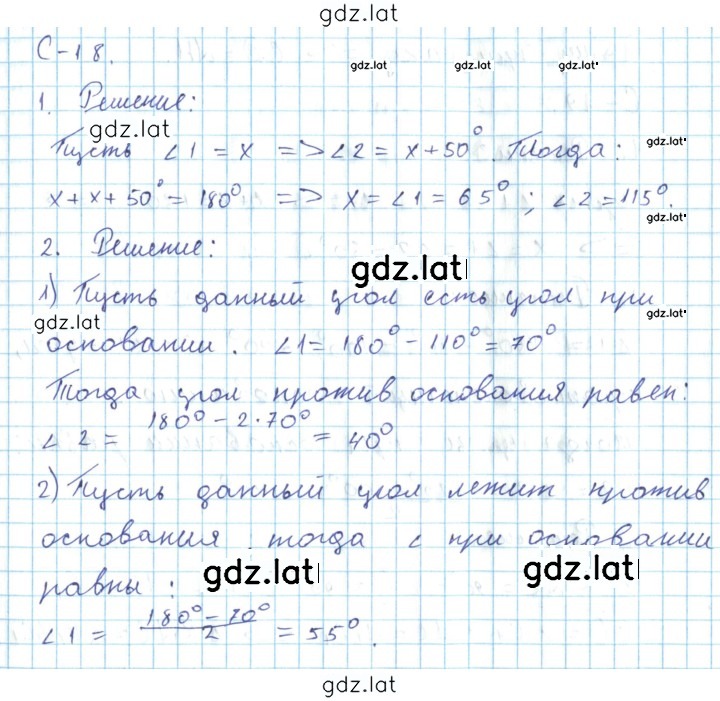 gdz.lat
С-18.
gdz.lat gdz.lat gdz.lat
1. Решение:
gdz.lat
Пусть ∠1 = x => ∠2 = x + 50°. Тогда:
gdz.lat
x + x + 50° = 180° => x = ∠1 = 65°; ∠2 = 115°.
gdz.lat
2. Решение:
gdz.lat
1) Пусть данный угол есть угол при
gdz.lat gdz.lat
основании. ∠1 = 180° - 110° = 70°
Тогда угол против основания равен:
∠2 = 180° - 2·70° = 40°
2) Пусть данный угол лежит против
основания тогда ∠ при основании
равны:
gdz.lat gdz.lat
∠1 = (180° - 70°)/2 = 55°.
gdz.lat